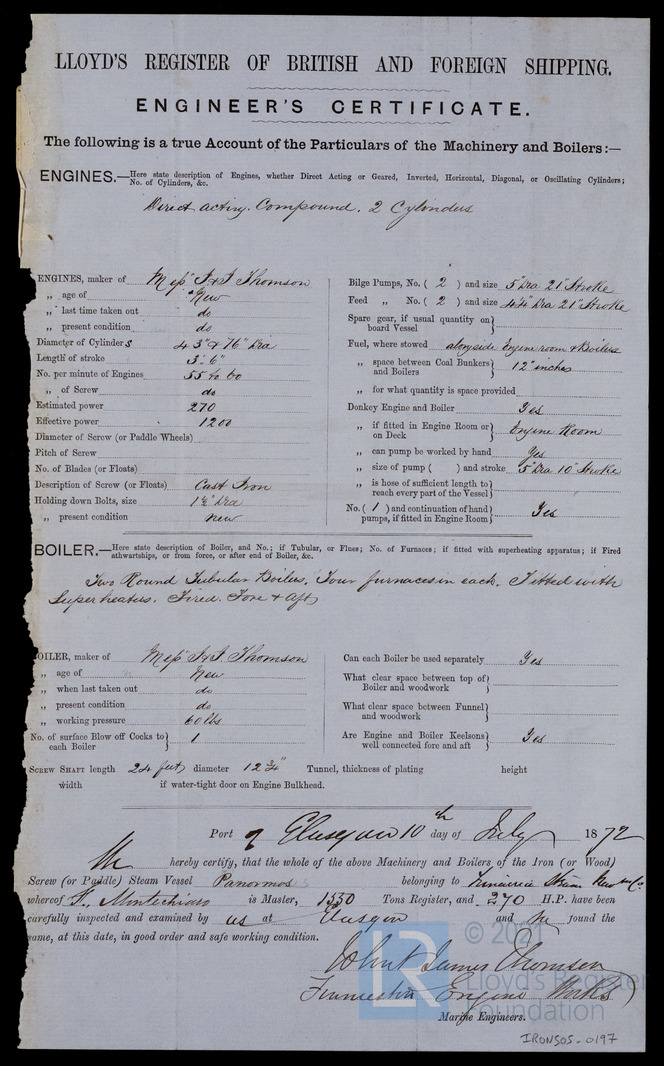 LLOYD'S REGISTER OF BRITISH AND FOREIGN SHIPPING.
ENGINEER'S CERTIFICATE.
The following is a true Account of the Particulars of the Machinery and Boilers:—
ENGINES.—Here state description of Engines, whether Direct Acting or Geared, Inverted, Horizontal, Diagonal, or Oscillating Cylinders;
No. of Cylinders, &c.
Direct acting. Compound. 2 Cylinders
ENGINES, maker of Mess J & J Thomson
„ age of New
„ last time taken out do
„ present condition do
Diameter of Cylinders 43" & 76" Dia
Length of stroke 3' 6"
No. per minute of Engines 55 to 60
„ of Screw do
Estimated power 270
Effective power 1200
Diameter of Screw (or Paddle Wheels)
Pitch of Screw
No. of Blades (or Floats)
Description of Screw (or Floats) Cast Iron
Holding down Bolts, size 1½" Dia
„ present condition New
Bilge Pumps, No. ( 2 ) and size 5" Dia 21" Stroke
Feed „ No. ( 2 ) and size 4¼ Dia 21" Stroke
Spare gear, if usual quantity on
board Vessel
Fuel, where stowed alongside Engine room & Boilers
„ space between Coal Bunkers
and Boilers 12" inches
„ for what quantity is space provided
Donkey Engine and Boiler Yes
„ if fitted in Engine Room or
on Deck Engine Room
„ can pump be worked by hand Yes
„ size of pump ( ) and stroke 5" Dia 10" Stroke
„ is hose of sufficient length to
reach every part of the Vessel
No. ( 1 ) and continuation of hand
pumps, if fitted in Engine Room Yes
BOILER.—Here state description of Boiler, and No.; if Tubular, or Flues; No. of Furnaces; if fitted with superheating apparatus; if Fired
athwartships, or from force, or after end of Boiler, &c.
Two Round Tubular Boilers. Four furnaces in each. Fitted with
Superheaters. Fired. Fore & Aft
BOILER, maker of Mess J & J Thomson
„ age of New
„ when last taken out do
„ present condition do
„ working pressure 60 lbs
No. of surface Blow off Cocks to
each Boiler 1
Can each Boiler be used separately Yes
What clear space between top of
Boiler and woodwork
What clear space between Funnel
and woodwork
Are Engine and Boiler Keelsons
well connected fore and aft Yes
SCREW SHAFT length 24 feet diameter 12¾" Tunnel, thickness of plating height
width if water-tight door on Engine Bulkhead.
Port of Glasgow 10th day of July 1872
We hereby certify, that the whole of the above Machinery and Boilers of the Iron (or Wood)
Screw (or Paddle) Steam Vessel Panormos belonging to Steam Navn Co.
whereof is Master, 1550 Tons Register, and 270 H.P. have been
carefully inspected and examined by us at Glasgow and We found the
same, at this date, in good order and safe working condition.
John & James Thomson
Finnieston Engine Works
Marine Engineers.
LR © 2021
Lloyd's Register
Foundation
IRONSOS-0197